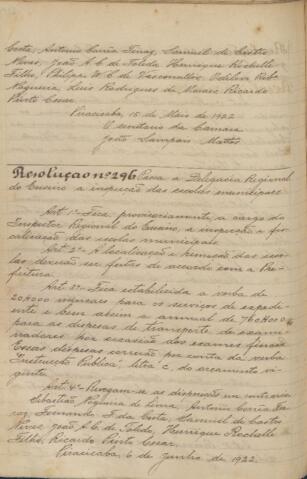 Costa, Antonio Corrêa Ferraz, Samuel de Castro
Neves, João A. C. de Toledo, Henrique Rochelle
Filho, Philipe W. C. de Vasconcellos, Odilon Rib.
Nogueira, Luis Rodrigues de Moraes, Ricardo
Pinto Cesar.
Piracicaba, 15 de Maio de 1922
O secretario da Camara
João Sampaio Mattos
Resolução nº 296 Passa a Delegacia Regional
do Ensino a inspecção das escolas municipaes
Art. 1º Fica, provisoriamente, a cargo do
Inspector Regional do Ensino, a inspecção e fis-
calização das escolas municipaes.
Art. 2º A localização e remoção das esco-
las deverão ser feitas de accordo com a Pre-
feitura.
Art. 3º Fica estabelecida a verba de
20$000 mensaes para os serviços de expedi-
ente e bem assim a annual de
para as despesas de transporte de exami-
nadores por occasião dos exames finaes.
Essas despesas correrão por conta da verba
"Instrucção Publica", letra c, do orçamento vi-
gente.
Art. 4º Revogam-se as disposições em contrario.
Sebastião Nogueira de Lima, Antonio Corrêa Fer-
raz, Fernando F. da Costa, Samuel de Castro
Neves, João A. C. de Toledo, Henrique Rochelle
Filho, Ricardo Pinto Cesar.
Piracicaba, 6 de Junho de 1922.